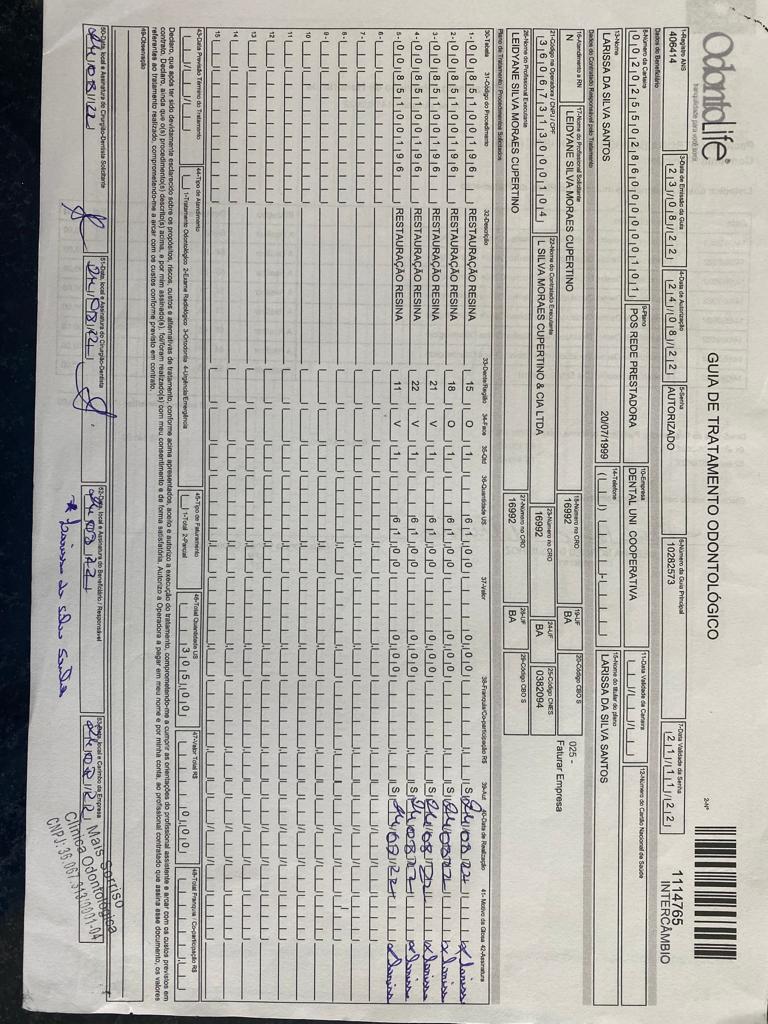 OdontoLife®
tranquilidade pra você sorrir
GUIA DE TRATAMENTO ODONTOLÓGICO
2-Nº
1114765
INTERCÂMBIO
1-Registro ANS
406414
3-Data de Emissão da Guia
23/08/22
4-Data de Autorização
24/08/22
5-Senha
AUTORIZADO
6-Número da Guia Principal
10282573
7-Data Validade da Senha
21/11/22
Dados do Beneficiário
8-Número da Carteira
00202550286000000101
9-Plano
POS REDE PRESTADORA
10-Empresa
DENTAL UNI COOPERATIVA
11-Data Validade da Carteira
12-Número do Cartão Nacional de Saúde
13-Nome
LARISSA DA SILVA SANTOS
20/07/1999
14-Telefone
15-Nome do titular do plano
LARISSA DA SILVA SANTOS
Dados do Contratado Responsável pelo Tratamento
16-Atendimento a RN
N
17-Nome do Profissional Solicitante
LEIDYANE SILVA MORAES CUPERTINO
18-Número no CRO
16992
19-UF
BA
20-Código CBO S
025 -
Faturar Empresa
21-Código na Operadora / CNPJ / CPF
36067313000104
22-Nome do Contratado Executante
L SILVA MORAES CUPERTINO & CIA LTDA
23-Número no CRO
16992
24-UF
BA
25-Código CNES
0382094
26-Nome do Profissional Executante
LEIDYANE SILVA MORAES CUPERTINO
27-Número no CRO
16992
28-UF
BA
29-Código CBO S
Plano de Tratamento / Procedimentos Solicitados
30-Tabela 31-Código do Procedimento 32-Descrição 33-Dente/Região 34-Face 35-Qtd 36-Quantidade US 37-Valor 38-Franquia/Co-participação R$ 39-Aut 40-Data de Realização 41- Motivo da Glosa 42-Assinatura
1- 00 85100196 RESTAURAÇÃO RESINA 15 O 1 61,00 0,00 S 24/08/22 x Larissa
2- 00 85100196 RESTAURAÇÃO RESINA 18 O 1 61,00 0,00 S 24/08/22 x Larissa
3- 00 85100196 RESTAURAÇÃO RESINA 21 V 1 61,00 0,00 S 24/08/22 x Larissa
4- 00 85100196 RESTAURAÇÃO RESINA 22 V 1 61,00 0,00 S 24/08/22 x Larissa
5- 00 85100196 RESTAURAÇÃO RESINA 11 V 1 61,00 0,00 S 24/08/22 x Larissa
6-
7-
8-
9-
10
11
12
13
14
15
43-Data Previsão Término do Tratamento
44-Tipo de Atendimento
1-Tratamento Odontológico 2-Exame Radiológico 3-Ortodontia 4-Urgência/Emergência
45-Tipo de Faturamento
1-Total 2-Parcial
46-Total Quantidade US
305,00
47-Valor Total R$
0,00
48-Total Franquia / Co-participação R$
Declaro, que após ter sido devidamente esclarecido sobre os propósitos, riscos, custos e alternativas de tratamento, conforme acima apresentados, aceito e autorizo a execução do tratamento, comprometendo-me a cumprir as orientações do profissional assistente e arcar com os custos previstos em
contrato. Declaro, ainda que o(s) procedimento(s) descrito(s) acima, e por mim assinado(s), foi/foram realizado(s) com meu consentimento e de forma satisfatória. Autorizo a Operadora a pagar em meu nome e por minha conta, ao profissional contratado que assina esse documento, os valores
referentes ao tratamento realizado, comprometendo-me a arcar com os custos conforme previsto em contrato.
49-Observação
50-Data, local e Assinatura do Cirurgião-Dentista Solicitante
24/08/22
51-Data, local e Assinatura do Cirurgião-Dentista
24/08/22
52-Data, local e Assinatura do Beneficiário / Responsável
24/08/22
x Larissa da Silva Santos
53-Data, local e Carimbo da Empresa
24/08/22
Mais Sorriso
Clínica Odontológica
CNPJ: 36.067.313/0001-04